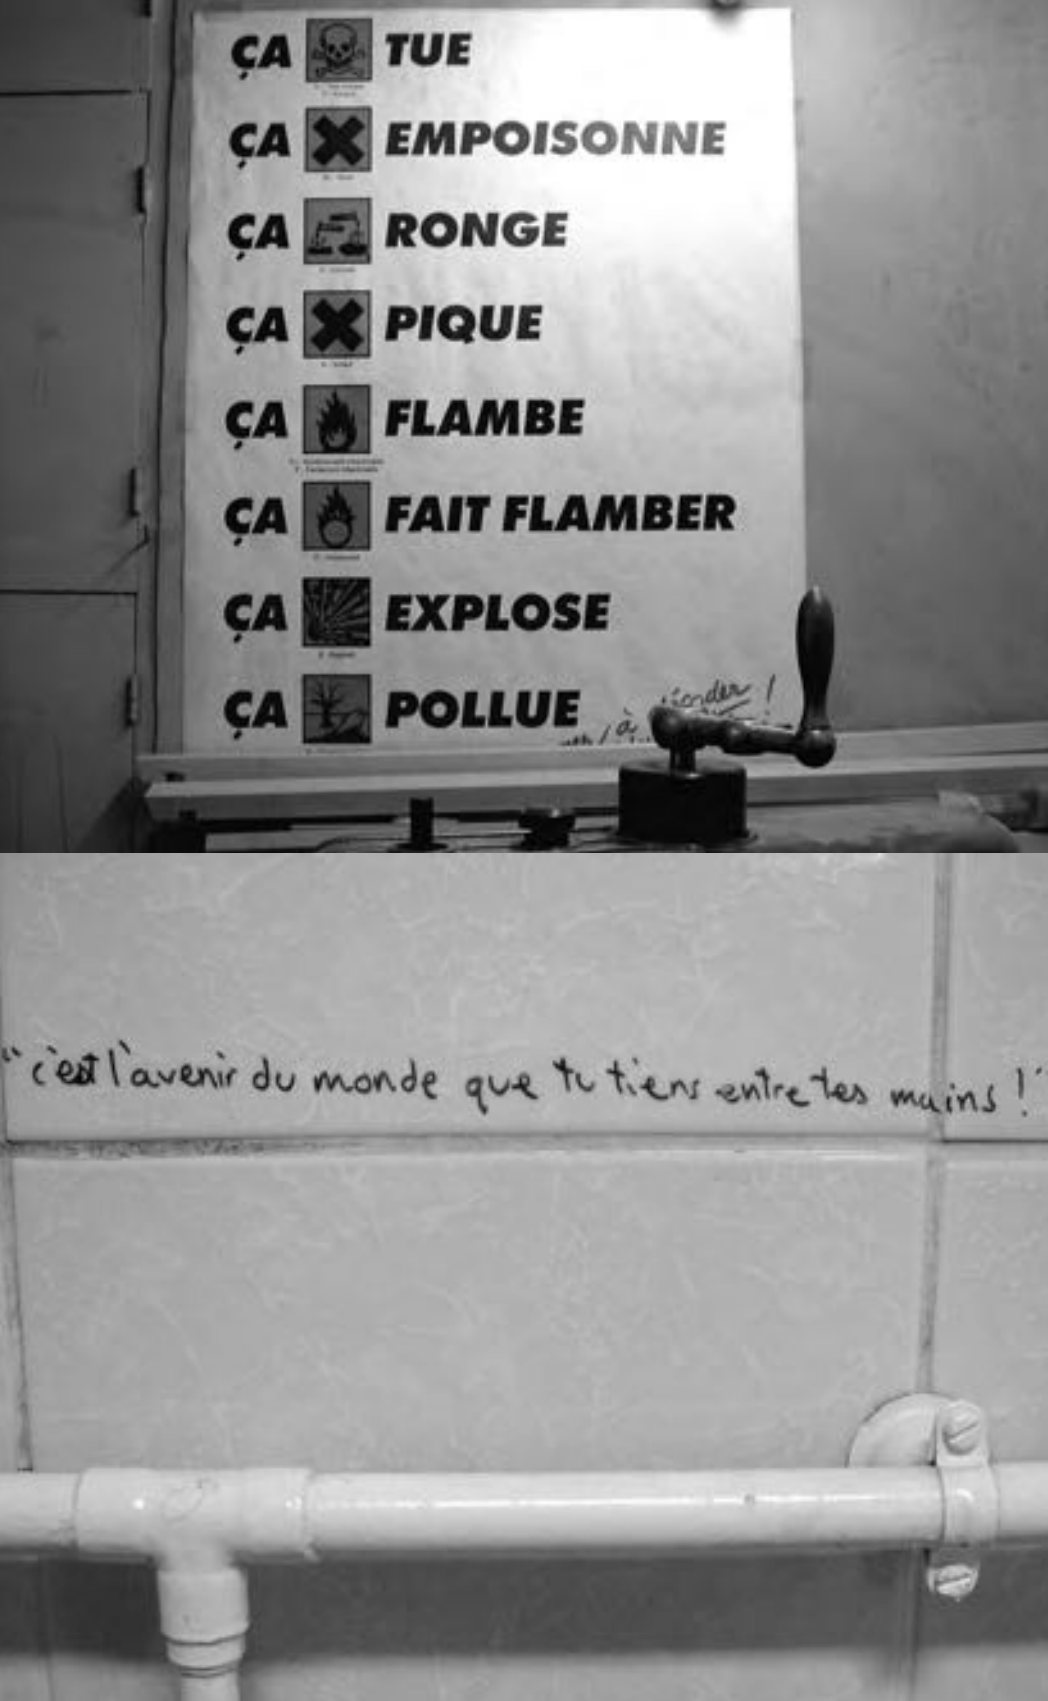 ÇA TUE
ÇA EMPOISONNE
ÇA RONGE
ÇA PIQUE
ÇA FLAMBE
ÇA FAIT FLAMBER
ÇA EXPLOSE
ÇA POLLUE
à
"c'est l'avenir du monde que tu tiens entre tes mains !"